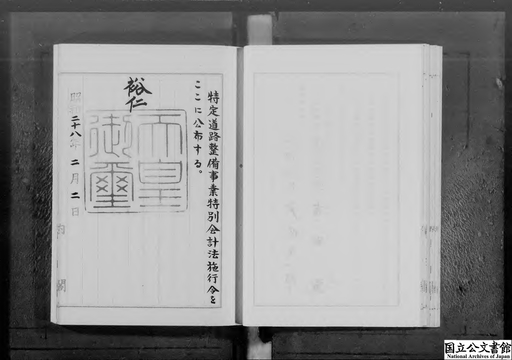 特定道路整備事業特別会計法施行令を
ここに公布する。
裕仁
天皇
御璽
昭和二十八年二月二日
内閣
国立公文書館
National Archives of Japan